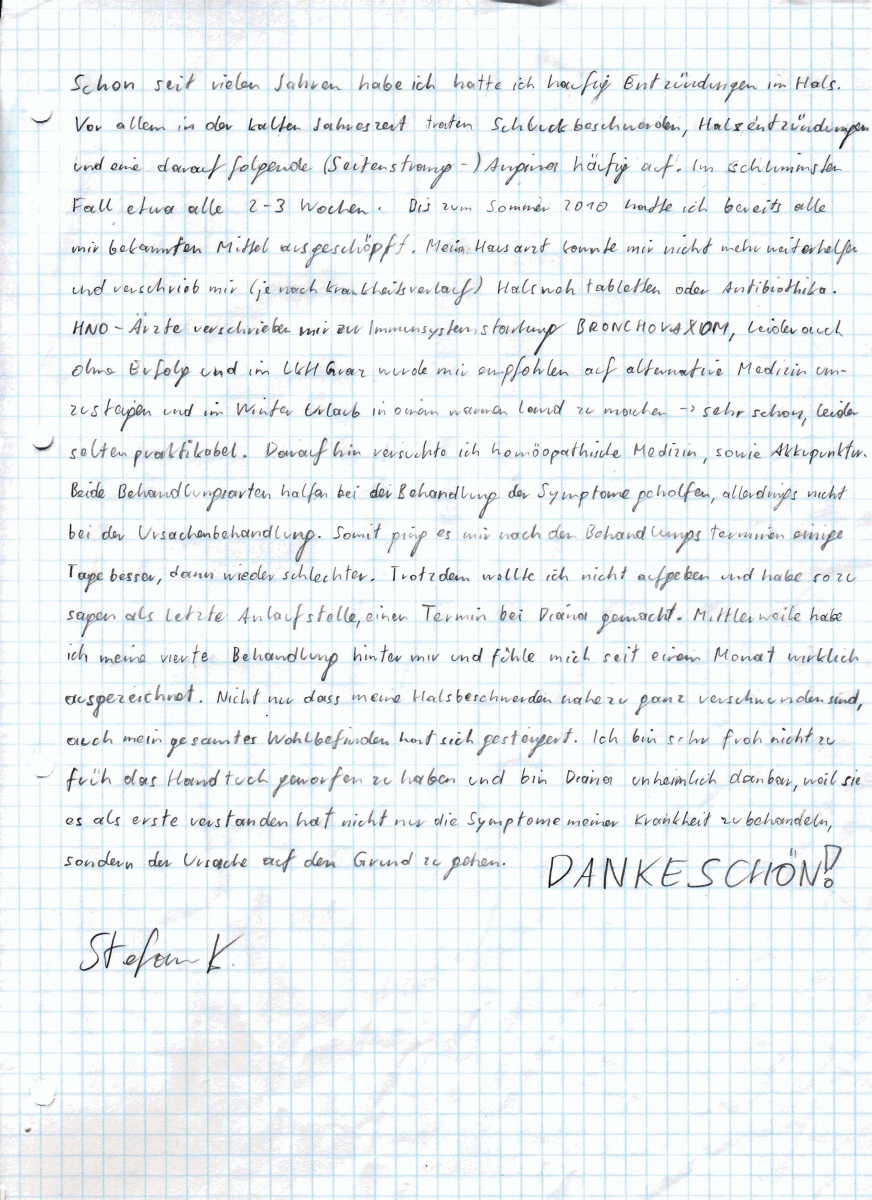 Schon seit vielen Jahren habe ich hatte ich häufig Entzündungen im Hals.
Vor allem in der kalten Jahreszeit traten Schluckbeschwerden, Halsentzündungen
und eine darauf folgende (Seitenstrang-) Angina häufig auf. Im schlimmsten
Fall etwa alle 2-3 Wochen. Bis zum Sommer 2010 hatte ich bereits alle
mir bekannten Mittel ausgeschöpft. Mein Hausarzt konnte mir nicht mehr weiterhelfen
und verschrieb mir (je nach Krankheitsverlauf) Halsweh tabletten oder Antibiothika.
HNO-Ärzte verschrieben mir zur Immunsystemstärkung BRONCHOVAXOM, leider auch
ohne Erfolg und im LKH Graz wurde mir empfohlen auf alternative Medizin um-
zusteigen und im Winter Urlaub in einem warmen Land zu machen → sehr schön, leider
selten praktikabel. Daraufhin versuchte ich homöopathische Medizin, sowie Akkupunktur.
Beide Behandlungsarten halfen bei der Behandlung der Symptome geholfen, allerdings nicht
bei der Ursachenbehandlung. Somit ging es mir nach den Behandlungs terminen einige
Tage besser, dann wieder schlechter. Trotzdem wollte ich nicht aufgeben und habe sozu
sagen als letzte Anlaufstelle, einen Termin bei Diana gemacht. Mittlerweile habe
ich meine vierte Behandlung hinter mir und fühle mich seit einem Monat wirklich
ausgezeichnet. Nicht nur dass meine Halsbeschwerden nahezu ganz verschwunden sind,
auch mein gesamtes Wohlbefinden hat sich gesteigert. Ich bin sehr froh nicht zu
früh das Handtuch geworfen zu haben und bin Diana unheimlich danbar, weil sie
es als erste verstanden hat nicht nur die Symptome meiner Krankheit zu behandeln,
sondern der Ursache auf den Grund zu gehen. DANKESCHÖN!
Stefan K.